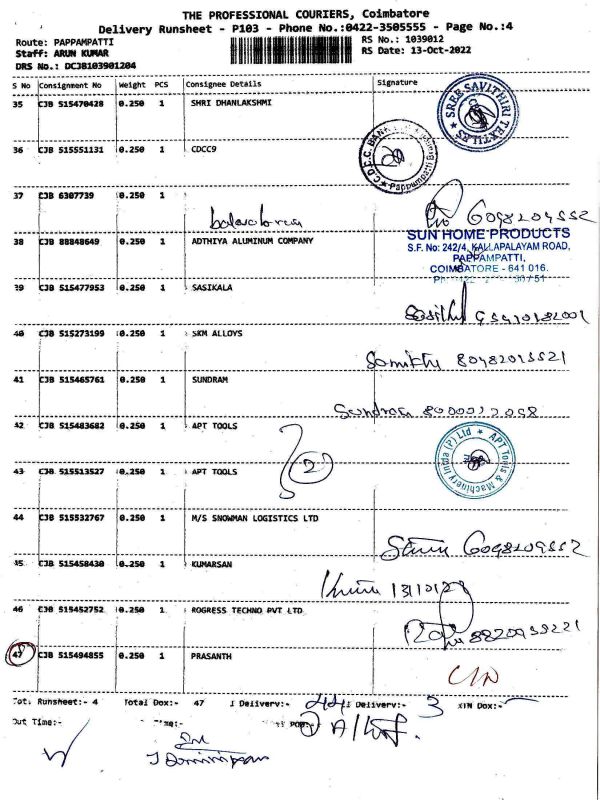 THE PROFESSIONAL COURIERS, Coimbatore
Delivery Runsheet - P103 - Phone No.:0422-3505555 - Page No.:4
Route: PAPPAMPATTI
RS No.: 1039012
Staff: ARUN KUMAR
RS Date: 13-Oct-2022
DRS No.: DCJB103901204
S No Consignment No Weight PCS Consignee Details Signature
35 CJB 515470428 0.250 1 SHRI DHANLAKSHMI
SREE SAVITHIRI TEXTILES
36 CJB 515551131 0.250 1 CDCC9
C.D.C.C. BANK
Pappumpatti
37 CJB 6307739 0.250 1
6098209552
38 CJB 88848649 0.250 1 ADTHIYA ALUMINUM COMPANY
SUN HOME PRODUCTS
S.F. No: 242/4, KALLAPALAYAM ROAD,
PAPPAMPATTI,
COIMBATORE - 641 016.
39 CJB 515477953 0.250 1 SASIKALA
40 CJB 515273199 0.250 1 SKM ALLOYS
41 CJB 515465761 0.250 1 SUNDRAM
Sundram
42 CJB 515483682 0.250 1 APT TOOLS
2
APT Tools & Machinery India (P) Ltd
43 CJB 515513527 0.250 1 APT TOOLS
44 CJB 515532767 0.250 1 M/S SNOWMAN LOGISTICS LTD
6098209552
45 CJB 515458430 0.250 1 KUMARSAN
46 CJB 515452752 0.250 1 ROGRESS TECHNO PVT LTD
47 CJB 515494855 0.250 1 PRASANTH
Tot. Runsheet:- 4 Total Dox:- 47 Delivery:- 44 Delivery:- 3 Dox:-
Out Time:- Time:- POD:-